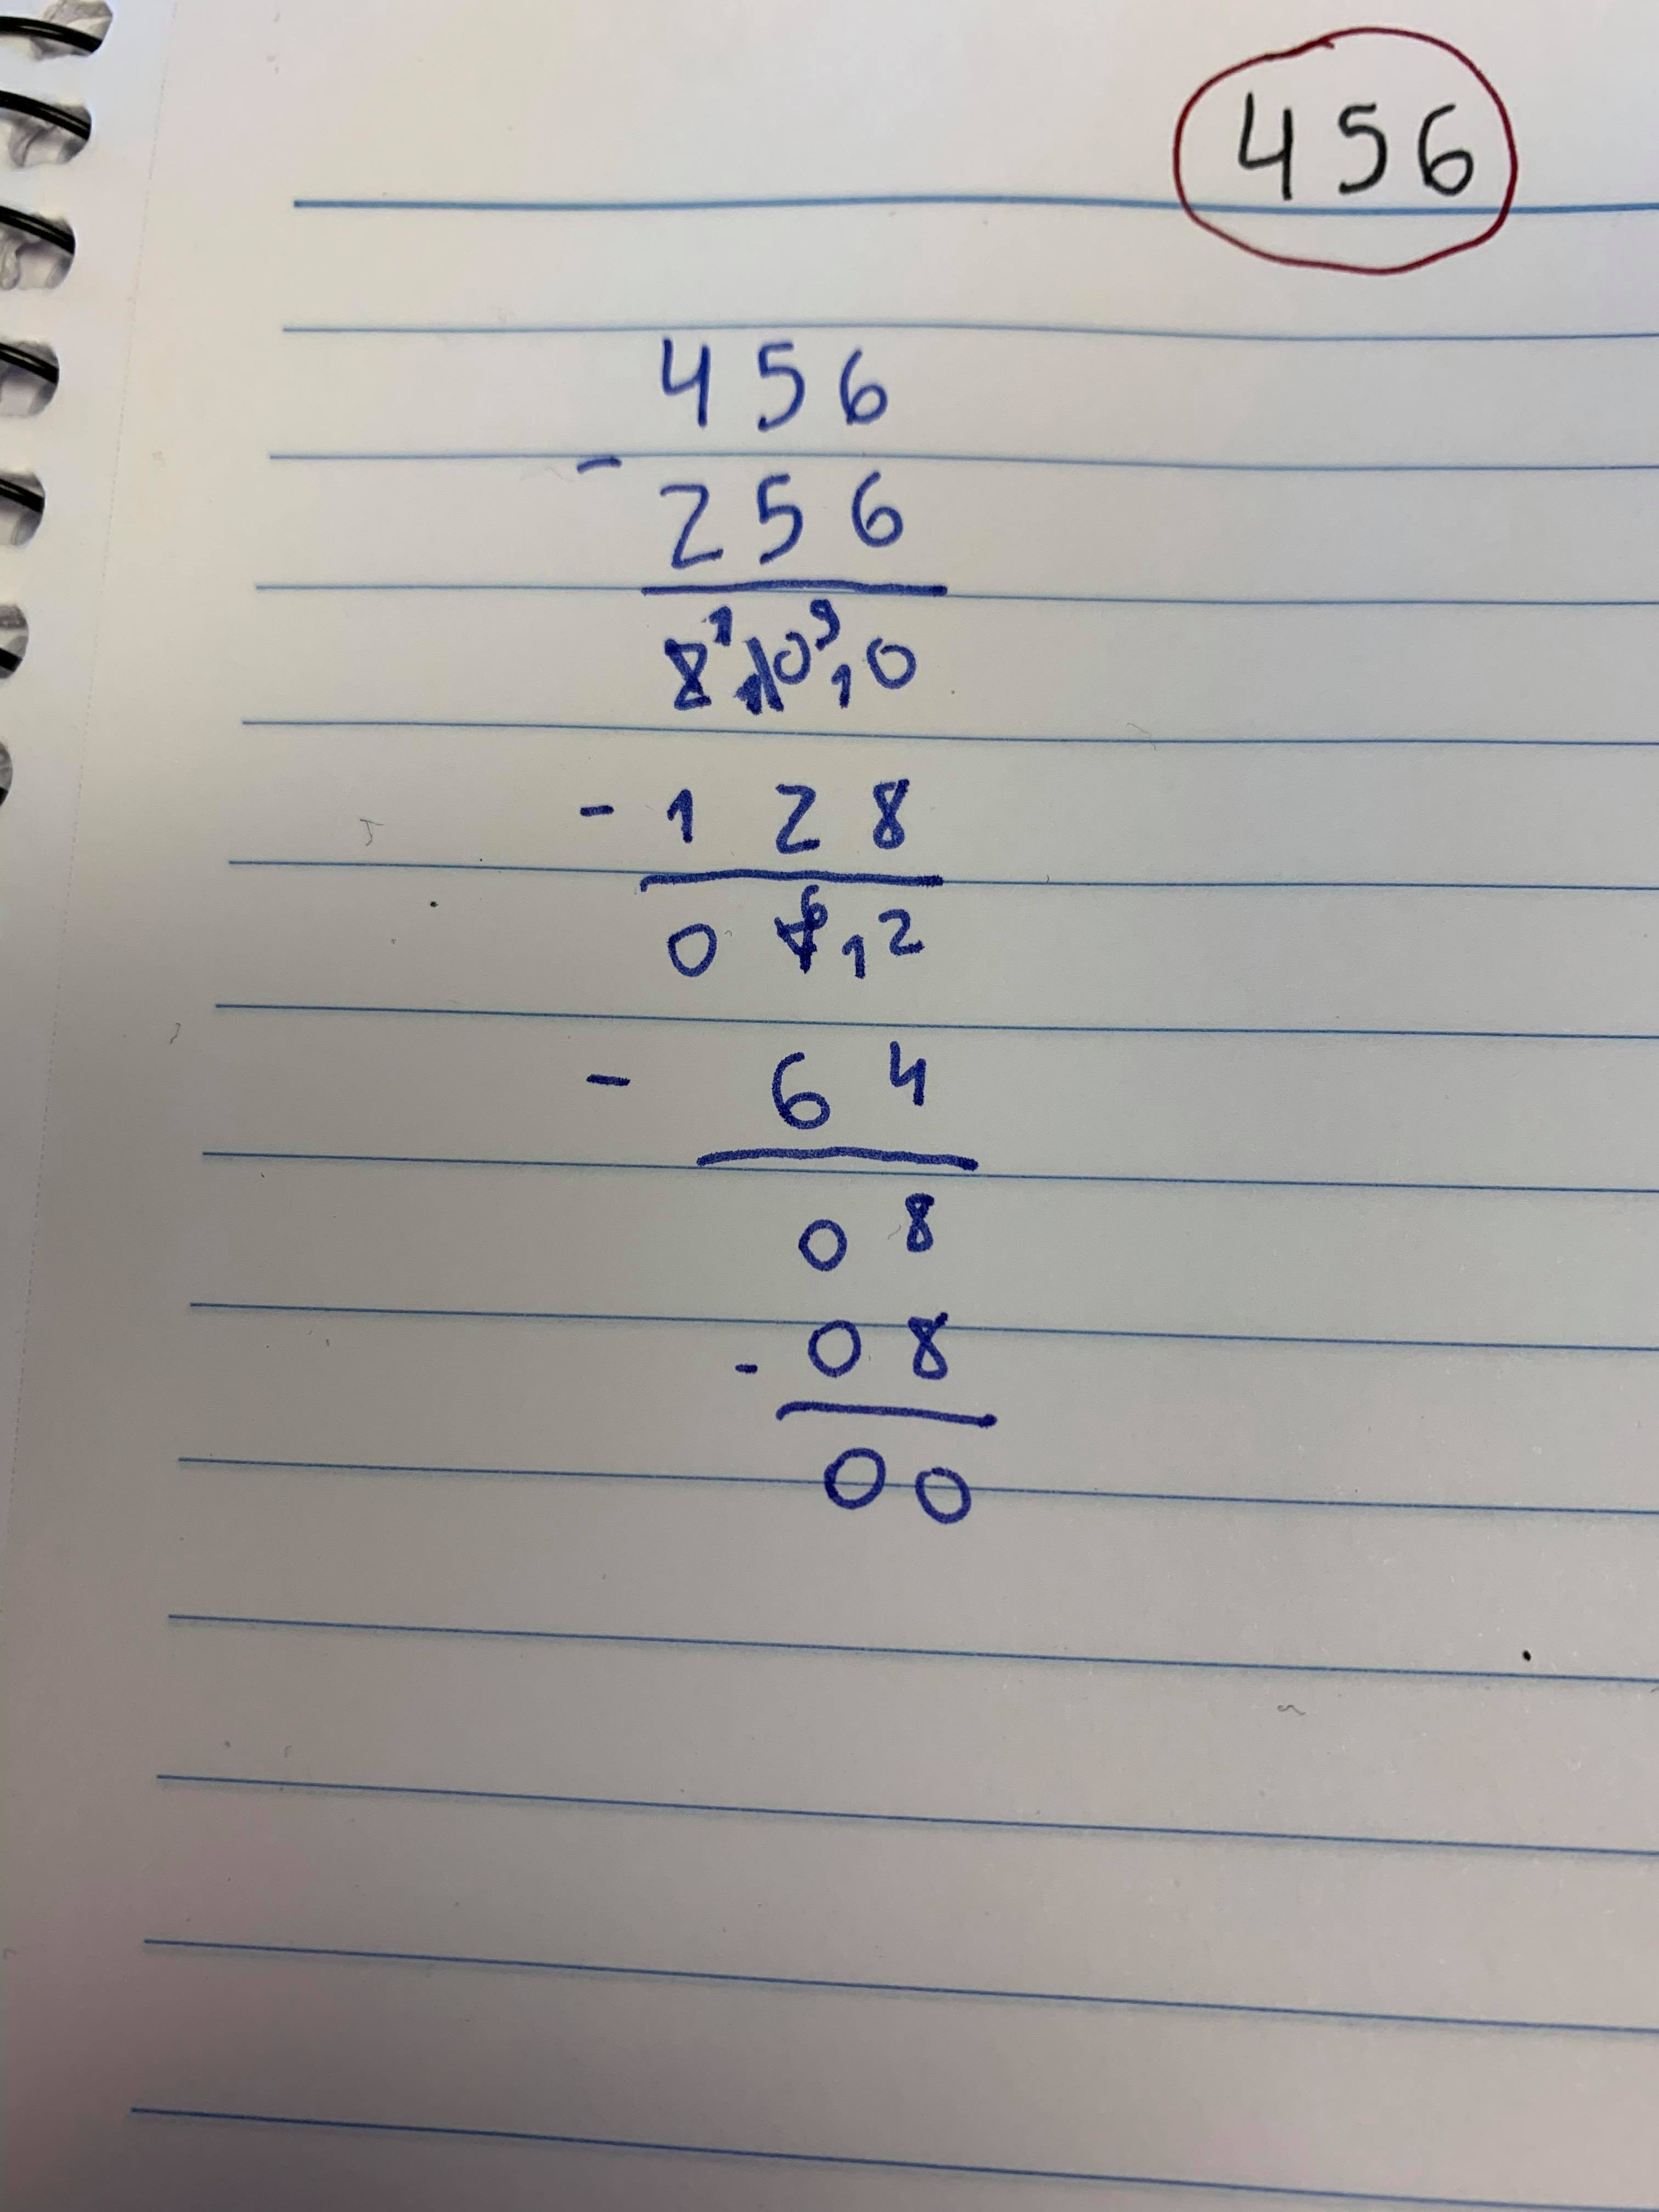 456
456
- 256
200
- 128
072
- 64
08
- 08
00